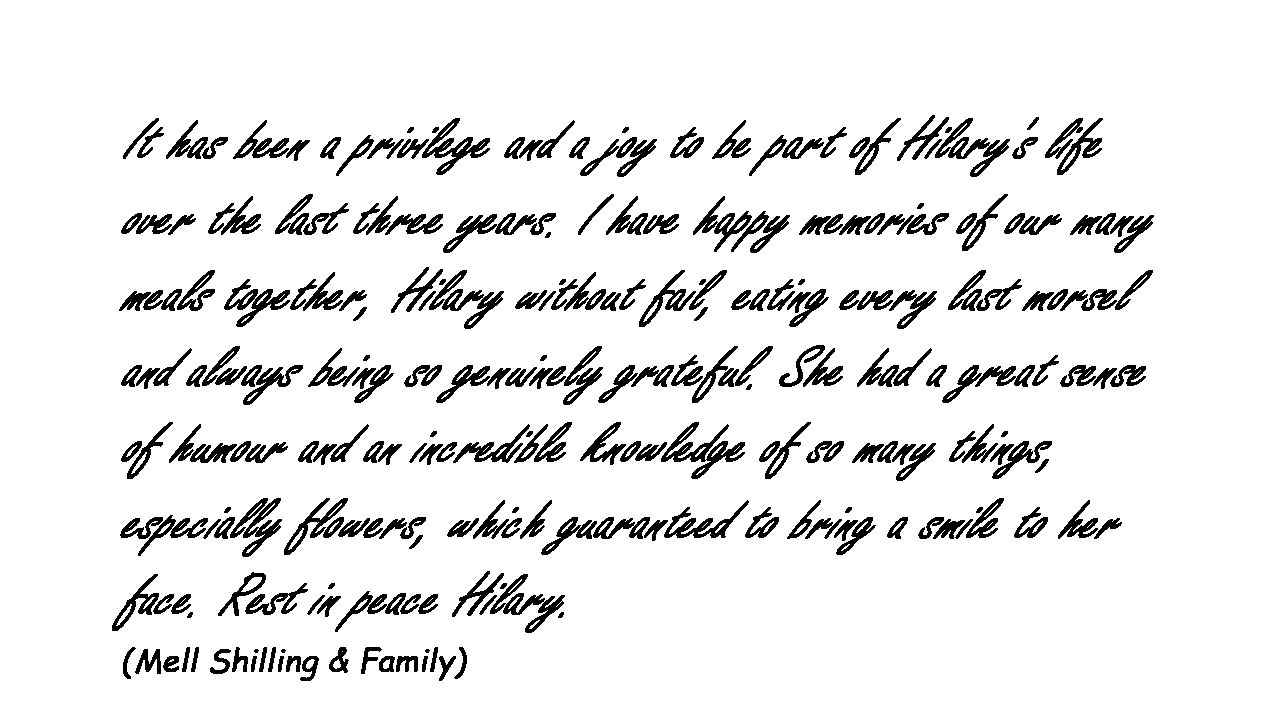 It has been a privilege and a joy to be part of Hilary's life
over the last three years. I have happy memories of our many
meals together, Hilary without fail, eating every last morsel
and always being so genuinely grateful. She had a great sense
of humour and an incredible knowledge of so many things,
especially flowers, which guaranteed to bring a smile to her
face. Rest in peace Hilary.
(Mell Shilling & Family)